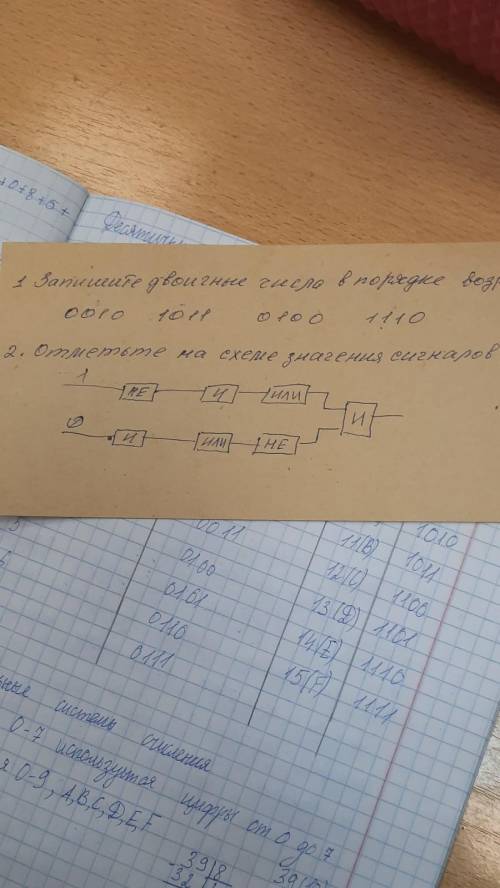 +0+8+6+
1 Запишите двоичные числа в порядке
0010 1011 0100 1110
2. Отметьте на схеме значения сигналов
1 НЕ И ИЛИ
И
0 И ИЛИ НЕ
0011 11(B) 1010
0100 12(C) 1011
0101 13(D) 1100
0110 14(E) 1101
0111 15(F) 1110
1111
системы счисления
0-7 используются цифры от 0 до 7
0-9, A, B, C, D, E, F
39 8
32